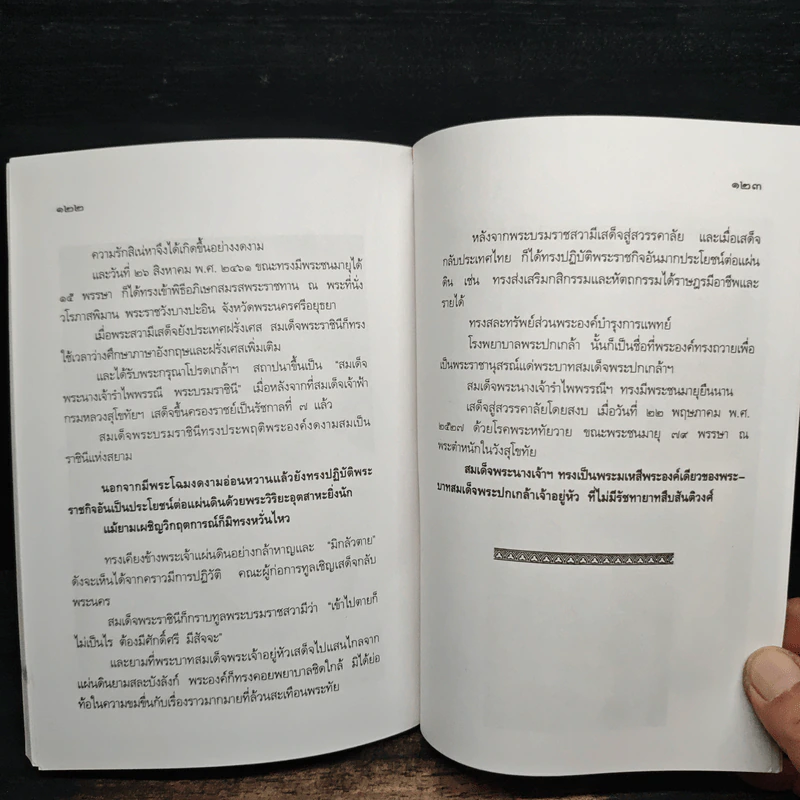 ๑๒๒
ความรักสิเน่หาจึงได้เกิดขึ้นอย่างงดงาม
และวันที่ ๒๖ สิงหาคม พ.ศ. ๒๔๖๑ ขณะทรงมีพระชนมายุได้
๑๕ พรรษา ก็ได้ทรงเข้าพิธีอภิเษกสมรสพระราชทาน ณ พระที่นั่ง
วโรภาสพิมาน พระราชวังบางปะอิน จังหวัดพระนครศรีอยุธยา
เมื่อพระสวามีเสด็จยังประเทศฝรั่งเศส สมเด็จพระราชินีก็ทรง
ใช้เวลาว่างศึกษาภาษาอังกฤษและฝรั่งเศสเพิ่มเติม
และได้รับพระกรุณาโปรดเกล้าฯ สถาปนาขึ้นเป็น "สมเด็จ
พระนางเจ้ารำไพพรรณี พระบรมราชินี" เมื่อหลังจากที่สมเด็จเจ้าฟ้า
กรมหลวงสุโขทัยฯ เสด็จขึ้นครองราชย์เป็นรัชกาลที่ ๗ แล้ว
สมเด็จพระบรมราชินีทรงประพฤติพระองค์งดงามสมเป็น
ราชินีแห่งสยาม
นอกจากมีพระโฉมงดงามอ่อนหวานแล้วยังทรงปฏิบัติพระ
ราชกิจอันเป็นประโยชน์ต่อแผ่นดินด้วยพระวิริยะอุตสาหะยิ่งนัก
แม้ยามเผชิญวิกฤตการณ์ก็มิทรงหวั่นไหว
ทรงเคียงข้างพระเจ้าแผ่นดินอย่างกล้าหาญและ "มิกลัวตาย"
ดังจะเห็นได้จากคราวมีการปฏิวัติ คณะผู้ก่อการทูลเชิญเสด็จกลับ
พระนคร
สมเด็จพระราชินีก็กราบทูลพระบรมราชสวามีว่า "เข้าไปตายก็
ไม่เป็นไร ต้องมีศักดิ์ศรี มีสัจจะ"
และยามที่พระบาทสมเด็จพระเจ้าอยู่หัวเสด็จไปแสนไกลจาก
แผ่นดินยามสละบังลังก์ พระองค์ก็ทรงคอยพยาบาลชิดใกล้ มิได้ย่อ
ท้อในความขมขื่นกับเรื่องราวมากมายที่ล้วนสะเทือนพระทัย
๑๒๓
หลังจากพระบรมราชสวามีเสด็จสู่สวรรคาลัย และเมื่อเสด็จ
กลับประเทศไทย ก็ได้ทรงปฏิบัติพระราชกิจอันมากประโยชน์ต่อแผ่น
ดิน เช่น ทรงส่งเสริมกสิกรรมและหัตถกรรมได้ราษฎรมีอาชีพและ
รายได้
ทรงสละทรัพย์ส่วนพระองค์บำรุงการแพทย์
โรงพยาบาลพระปกเกล้า นั้นก็เป็นชื่อที่พระองค์ทรงถวายเพื่อ
เป็นพระราชานุสรณ์แด่พระบาทสมเด็จพระปกเกล้าฯ
สมเด็จพระนางเจ้ารำไพพรรณีฯ ทรงมีพระชนมายุยืนนาน
เสด็จสู่สวรรคาลัยโดยสงบ เมื่อวันที่ ๒๒ พฤษภาคม พ.ศ.
๒๕๒๗ ด้วยโรคพระหทัยวาย ขณะพระชนมายุ ๗๙ พรรษา ณ
พระตำหนักในวังสุโขทัย
สมเด็จพระนางเจ้าฯ ทรงเป็นพระมเหสีพระองค์เดียวของพระ-
บาทสมเด็จพระปกเกล้าเจ้าอยู่หัว ที่ไม่มีรัชทายาทสืบสันติวงศ์